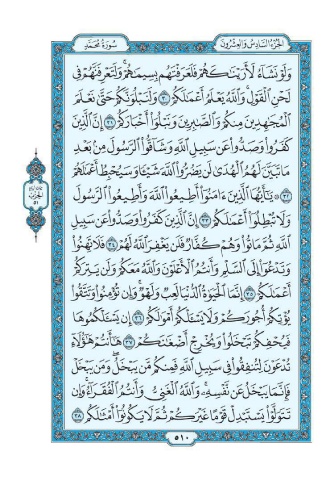 سُورَةُ مُحَمَّدٍ
الجُزْءُ السَّادِسُ وَالعِشْرُونَ
وَلَوْ نَشَآءُ لَأَرَيْنَٰكَهُمْ فَلَعَرَفْتَهُم بِسِيمَٰهُمْ ۚ وَلَتَعْرِفَنَّهُمْ فِى
لَحْنِ ٱلْقَوْلِ ۚ وَٱللَّهُ يَعْلَمُ أَعْمَٰلَكُمْ ٣٠ وَلَنَبْلُوَنَّكُمْ حَتَّىٰ نَعْلَمَ
ٱلْمُجَٰهِدِينَ مِنكُمْ وَٱلصَّٰبِرِينَ وَنَبْلُوَا۟ أَخْبَارَكُمْ ٣١ إِنَّ ٱلَّذِينَ
كَفَرُوا۟ وَصَدُّوا۟ عَن سَبِيلِ ٱللَّهِ وَشَآقُّوا۟ ٱلرَّسُولَ مِنۢ بَعْدِ
مَا تَبَيَّنَ لَهُمُ ٱلْهُدَىٰ لَن يَضُرُّوا۟ ٱللَّهَ شَيْـًٔا وَسَيُحْبِطُ أَعْمَٰلَهُمْ
٣٢ ۞ يَٰٓأَيُّهَا ٱلَّذِينَ ءَامَنُوٓا۟ أَطِيعُوا۟ ٱللَّهَ وَأَطِيعُوا۟ ٱلرَّسُولَ
وَلَا تُبْطِلُوٓا۟ أَعْمَٰلَكُمْ ٣٣ إِنَّ ٱلَّذِينَ كَفَرُوا۟ وَصَدُّوا۟ عَن سَبِيلِ
ٱللَّهِ ثُمَّ مَاتُوا۟ وَهُمْ كُفَّارٌ فَلَن يَغْفِرَ ٱللَّهُ لَهُمْ ٣٤ فَلَا تَهِنُوا۟
وَتَدْعُوٓا۟ إِلَى ٱلسَّلْمِ وَأَنتُمُ ٱلْأَعْلَوْنَ وَٱللَّهُ مَعَكُمْ وَلَن يَتِرَكُمْ
أَعْمَٰلَكُمْ ٣٥ إِنَّمَا ٱلْحَيَوٰةُ ٱلدُّنْيَا لَعِبٌ وَلَهْوٌ ۚ وَإِن تُؤْمِنُوا۟ وَتَتَّقُوا۟
يُؤْتِكُمْ أُجُورَكُمْ وَلَا يَسْـَٔلْكُمْ أَمْوَٰلَكُمْ ٣٦ إِن يَسْـَٔلْكُمُوهَا
فَيُحْفِكُمْ تَبْخَلُوا۟ وَيُخْرِجْ أَضْغَٰنَكُمْ ٣٧ هَٰٓأَنتُمْ هَٰٓؤُلَآءِ
تُدْعَوْنَ لِتُنفِقُوا۟ فِى سَبِيلِ ٱللَّهِ فَمِنكُم مَّن يَبْخَلُ ۖ وَمَن يَبْخَلْ
فَإِنَّمَا يَبْخَلُ عَن نَّفْسِهِۦ ۚ وَٱللَّهُ ٱلْغَنِىُّ وَأَنتُمُ ٱلْفُقَرَآءُ ۚ وَإِن
تَتَوَلَّوْا۟ يَسْتَبْدِلْ قَوْمًا غَيْرَكُمْ ثُمَّ لَا يَكُونُوٓا۟ أَمْثَٰلَكُم ٣٨
٥١٠